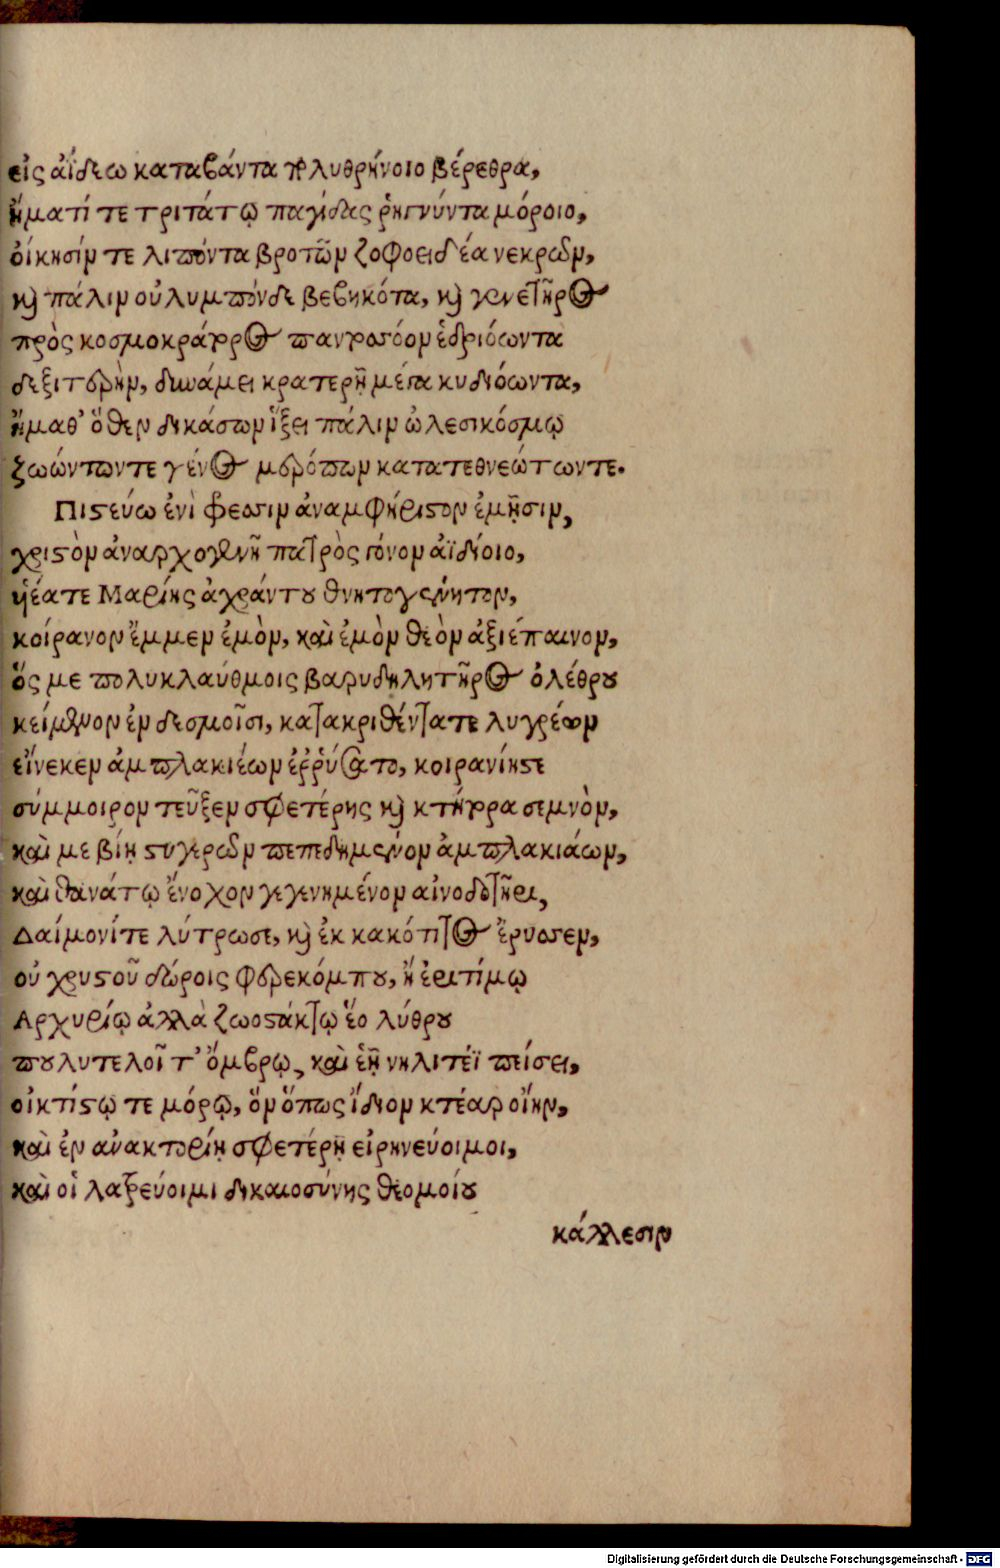 εἰς ἀΐδεω καταβάντα πολυθρήνοιο βέρεθρα,
ἤματί τε τριτάτῳ παγίδας ῥηγνύντα μόροιο,
οἴκησίν τε λιπόντα βροτῶν ζοφοειδέα νεκρῶν,
καὶ πάλιν οὐλυμπόνδε βεβηκότα, καὶ γενετῆρος
πρὸς κοσμοκράτορος παντοσόον ἑδριόωντα
δεξιτερὴν, δυνάμει κρατερῇ μέγα κυδιόωντα,
ἤμαθ' ὅθεν δικάσων ἵξει πάλιν ὠλεσικόσμῳ
ζωώντων τε γένος μερόπων κατατεθνεώτων τε.
Πιστεύω ἐνὶ φρεσὶν ἀναμφήριστον ἐμῇσιν,
χριστὸν ἀναρχογενῆ πατρὸς γόνον ἀϊδίοιο,
ἠέ ατε Μαρίης ἀχράντου θνητογένητον,
κοίρανον ἔμμεν ἐμὸν, καὶ ἐμὸν θεὸν ἀξιέπαινον,
ὅς με πολυκλαύθμοις βαρυδηλητῆρος ὀλέθρου
κείμενον ἐν δεσμοῖσι, κατακριθέντατε λυγρέων
εἵνεκεν ἀμπλακιέων ἐῤῥύσατο, κοιρανίηστε
σύμμοιρον τεῦξεν σφετέρης καὶ κτήτορα σεμνὸν,
καὶ με βίῃ στυγερῶν πεπεδημένον ἀμπλακιάων,
καὶ θανάτῳ ἔνοχον γεγενημένον αἰνοδοτῆρι,
Δαίμονί τε λύτρωσε, καὶ ἐκ κακότητος ἔρυσσεν,
οὐ χρυσοῦ δώροις φρενοκόμπου, ἢ ἐριτίμῳ
Αρχυρίῳ ἀλλὰ ζωοστάκτῳ ἕο λύθρου
πουλυτελοῖ τ' ὄμβρῳ, καὶ ἑῇ νηλιτέϊ πείσει,
οἰκτίστῳ τε μόρῳ, ὃν ὅπως ἴδιον κτέαρ οἴην,
καὶ ἐν ἀνακτορίῃ σφετέρῃ εἰρηνεύοιμοι,
καὶ οἱ λατρεύοιμι δικαιοσύνης θεομοίου
κάλλεσιν
Digitalisierung gefördert durch die Deutsche Forschungsgemeinschaft - DFG